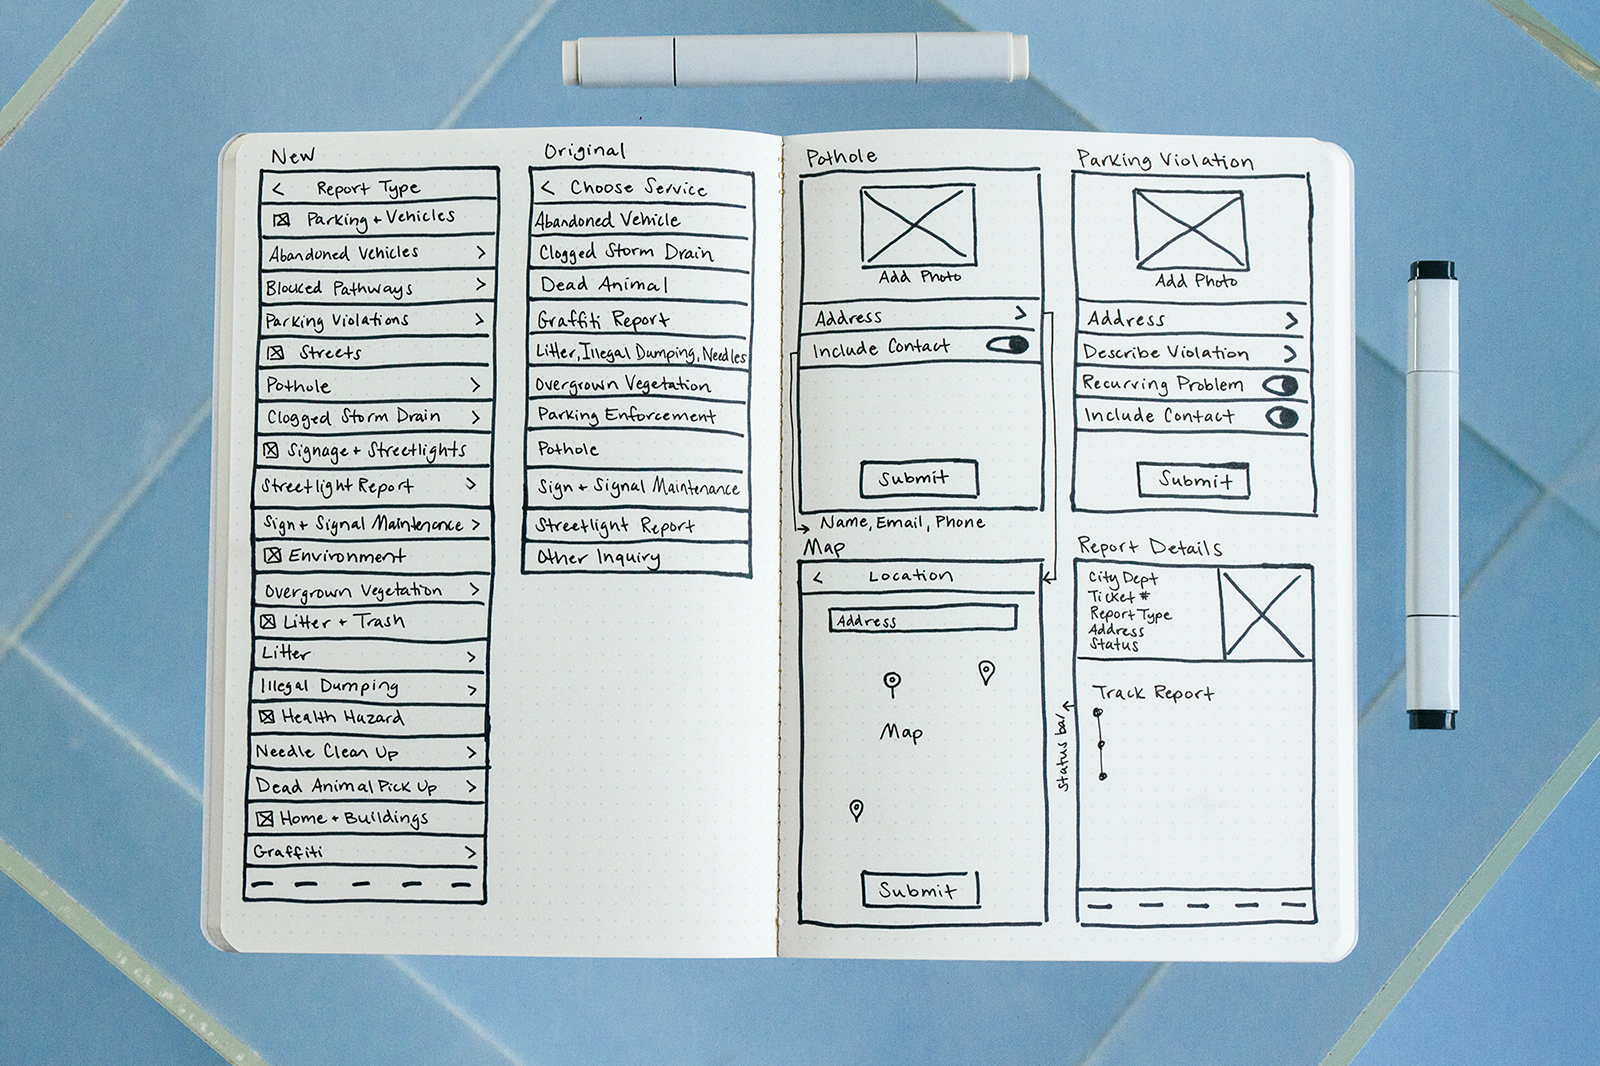 New
< Report Type
Parking + Vehicles
Abandoned Vehicles >
Blocked Pathways >
Parking Violations >
Streets
Pothole >
Clogged Storm Drain >
Signage + Streetlights
Streetlight Report >
Sign + Signal Maintenance >
Environment
Overgrown Vegetation >
Litter + Trash
Litter >
Illegal Dumping >
Health Hazard
Needle Clean Up >
Dead Animal Pick Up >
Home + Buildings
Graffiti >
Original
< Choose Service
Abandoned Vehicle
Clogged Storm Drain
Dead Animal
Graffiti Report
Litter, Illegal Dumping, Needles
Overgrown Vegetation
Parking Enforcement
Pothole
Sign + Signal Maintenance
Streetlight Report
Other Inquiry
Pothole
Add Photo
Address >
Include Contact
Submit
Name, Email, Phone
Parking Violation
Add Photo
Address >
Describe Violation >
Recurving Problem
Include Contact
Submit
Map
< Location
Address
Map
Submit
Status bar
Report Details
City Dept
Ticket #
Report Type
Address
Status
Track Report